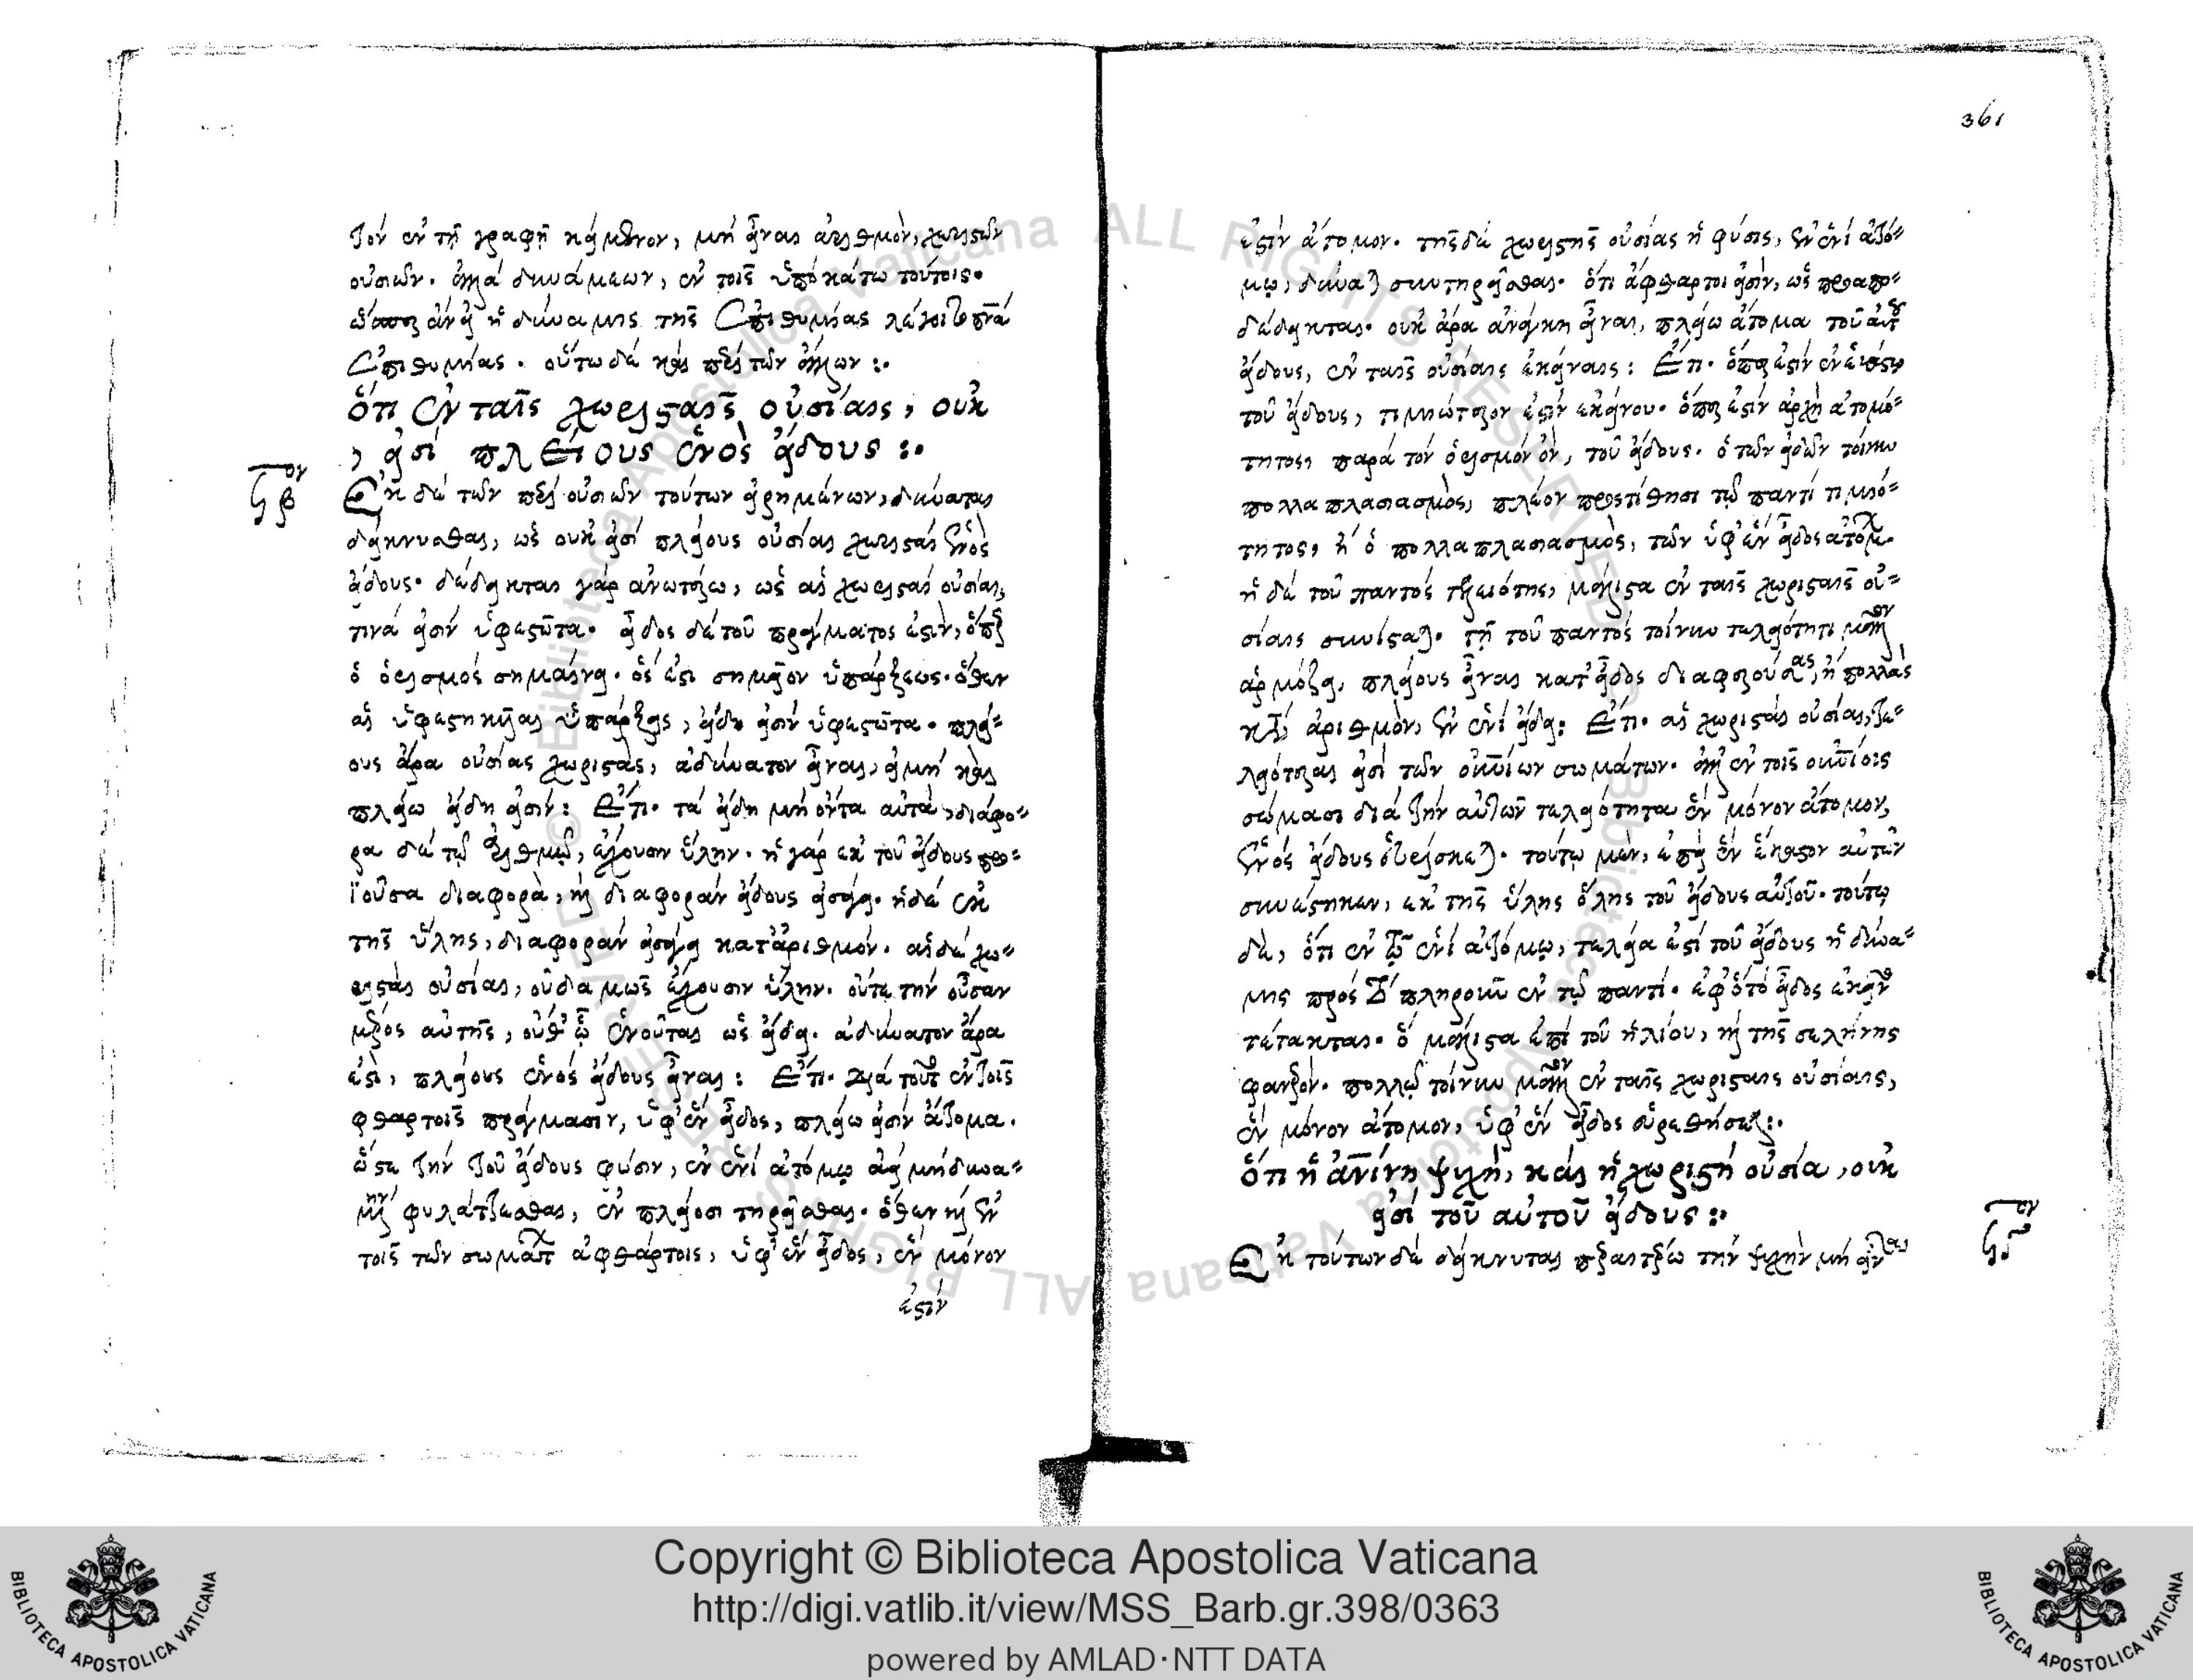 τον ἐν τῇ γραφῇ κείμενον, μὴ εἶναι ἀριθμὸν, χωριστῶν
οὐσιῶν. ἀλλὰ δυνάμεων, ἐν τοῖς ὑποκάτω τούτοις.
ὥσπερ ἂν εἰ ἡ δύναμις τῆς ἐπιθυμίας λέγοιτο πνεῦμα
ἐπιθυμίας. οὕτω δὲ καὶ περὶ τῶν ἄλλων:.
ὅτι ἐν ταῖς χωρισταῖς οὐσίαις, οὐκ
εἰσὶ πλείους ἑνὸς εἴδους:.
ϟβον
Ἐκ δὲ τῶν περὶ οὐσιῶν τούτων εἰρημένων, δύναται
δείκνυσθαι, ὡς οὐκ εἰσὶ πλείους οὐσίαι χωρισταὶ ἑνὸς
εἴδους. δέδεικται γὰρ ἀνωτέρω, ὡς αἱ χωρισταὶ οὐσίαι,
τινά εἰσιν ὑφεστῶτα. εἶδος δὲ τοῦ πράγματός ἐστιν, ὅπερ
ὁ ὁρισμὸς σημαίνει. ὅς ἐστι σημεῖον ὑπάρξεως. ὅθεν
αἱ ὑφεστηκυῖαι ὑπάρξεις, εἴδη εἰσὶν ὑφεστῶτα. πλεί=
ους ἄρα οὐσίας χωριστὰς, ἀδύνατον εἶναι, εἰ μὴ καὶ
πλείω εἴδη εἰσίν: Ἔτι. τὰ εἴδη μὴ ὄντα αὐτὰ, διάφο=
ρα δὲ τῷ ἀριθμῷ, ἔχουσιν ὕλην. ἡ γὰρ ἐκ τοῦ εἴδους προ=
ϊοῦσα διαφορὰ, καὶ διαφορὰν εἴδους εἰσάγει. ἡ δὲ ἐκ
τῆς ὕλης, διαφορὰν εἰσάγει κατ' ἀριθμόν. αἱ δὲ χω=
ρισταὶ οὐσίαι, οὐδαμῶς ἔχουσιν ὕλην. οὔτε τὴν οὖσαν
μέρος αὐτῆς, οὔθ' ᾧ ἑνοῦται ὡς εἴδει. ἀδύνατον ἄρα
ἐστὶ, πλείους ἑνὸς εἴδους εἶναι: Ἔτι. διὰ τοῦτο ἐν τοῖς
φθαρτοῖς πράγμασιν, ὑφ' ἓν εἶδος, πλείω εἰσὶν ἄτομα.
ὥστε τὴν τοῦ εἴδους φύσιν, ἐν ἑνὶ ἀτόμῳ ἀεὶ μὴ δυνα=
μένην φυλάττεσθαι, ἐν πλείοσι τηρεῖσθαι. ὅθεν καὶ ἐν
τοῖς τῶν σωμάτων ἀφθάρτοις, ὑφ' ἓν εἶδος, ἓν μόνον
ἐστίν
361
ἐστὶν ἄτομον. τῆς δὲ χωριστῆς οὐσίας ἡ φύσις, ἐν ἑνὶ ἀτό=
μῳ, δύναται συντηρεῖσθαι. ὅτι ἄφθαρτοί εἰσιν, ὡς προαπο=
δέδεικται. οὐκ ἄρα ἀνάγκη εἶναι, πλείω ἄτομα τοῦ αὐτοῦ
εἴδους, ἐν ταῖς οὐσίαις ἐκείναις: Ἔτι. ὅπερ ἐστὶν ἐν ἑκάστῳ
τοῦ εἴδους, τιμιώτερόν ἐστιν ἐκείνου. ὅπερ ἐστὶν ἀρχὴ ἀτομό=
τητος, παρὰ τὸν ὁρισμὸν ὂν, τοῦ εἴδους. ὁ τῶν εἰδῶν τοίνυν
πολλαπλασιασμὸς, πλέον προστίθησι τῷ παντὶ τιμιό=
τητος, ἢ ὁ πολλαπλασιασμὸς, τῶν ὑφ' ἓν εἶδος ἀτόμων.
ἡ δὲ τοῦ παντὸς τελειότης, μάλιστα ἐν ταῖς χωρισταῖς οὐ=
σίαις συνίσταται. τῇ τοῦ παντὸς τοίνυν τελειότητι μᾶλλον
ἁρμόζει, πλείους εἶναι κατ' εἶδος διαφερούσας, ἢ πολλὰς
κατὰ ἀριθμὸν, ἐν ἑνὶ εἴδει: Ἔτι. αἱ χωρισταὶ οὐσίαι, τε=
λειότεραι εἰσὶ τῶν οὐρανίων σωμάτων. ἀλλ' ἐν τοῖς οὐρανίοις
σώμασι διὰ τὴν αὐτῶν τελειότητα ἓν μόνον ἄτομον,
ἑνὸς εἴδους εὑρίσκεται. τούτῳ μὲν, ἐπεὶ ἓν ἕκαστον αὐτῶν
συνέστηκεν, ἐκ τῆς ὕλης ὅλης τοῦ εἴδους αὐτοῦ. τούτῳ
δὲ, ὅτι ἐν τῷ ἑνὶ ἀτόμῳ, τελεία ἐστὶ τοῦ εἴδους ἡ δύνα=
μις πρὸς τὸ πληροῦν ἐν τῷ παντὶ. ἐφ' ὃ τὸ εἶδος ἐκεῖνο
τέτακται. ὃ μάλιστα ἐπὶ τοῦ ἡλίου, καὶ τῆς σελήνης
φανερόν. πολλῷ τοίνυν μᾶλλον ἐν ταῖς χωρισταῖς οὐσίαις,
ἓν μόνον ἄτομον, ὑφ' ἓν εἶδος εὑρεθήσεται:.
ὅτι ἡ ἀνθρωπίνη ψυχὴ, καὶ ἡ χωριστὴ οὐσία, οὐκ
εἰσὶ τοῦ αὐτοῦ εἴδους:.
Ἐκ τούτων δὲ δείκνυται περαιτέρω τὴν ψυχὴν μὴ εἶναι
Copyright © Biblioteca Apostolica Vaticana
http://digi.vatlib.it/view/MSS_Barb.gr.398/0363
powered by AMLAD·NTT DATA
BIBLIOTECA APOSTOLICA VATICANA
BIBLIOTECA APOSTOLICA VATICANA